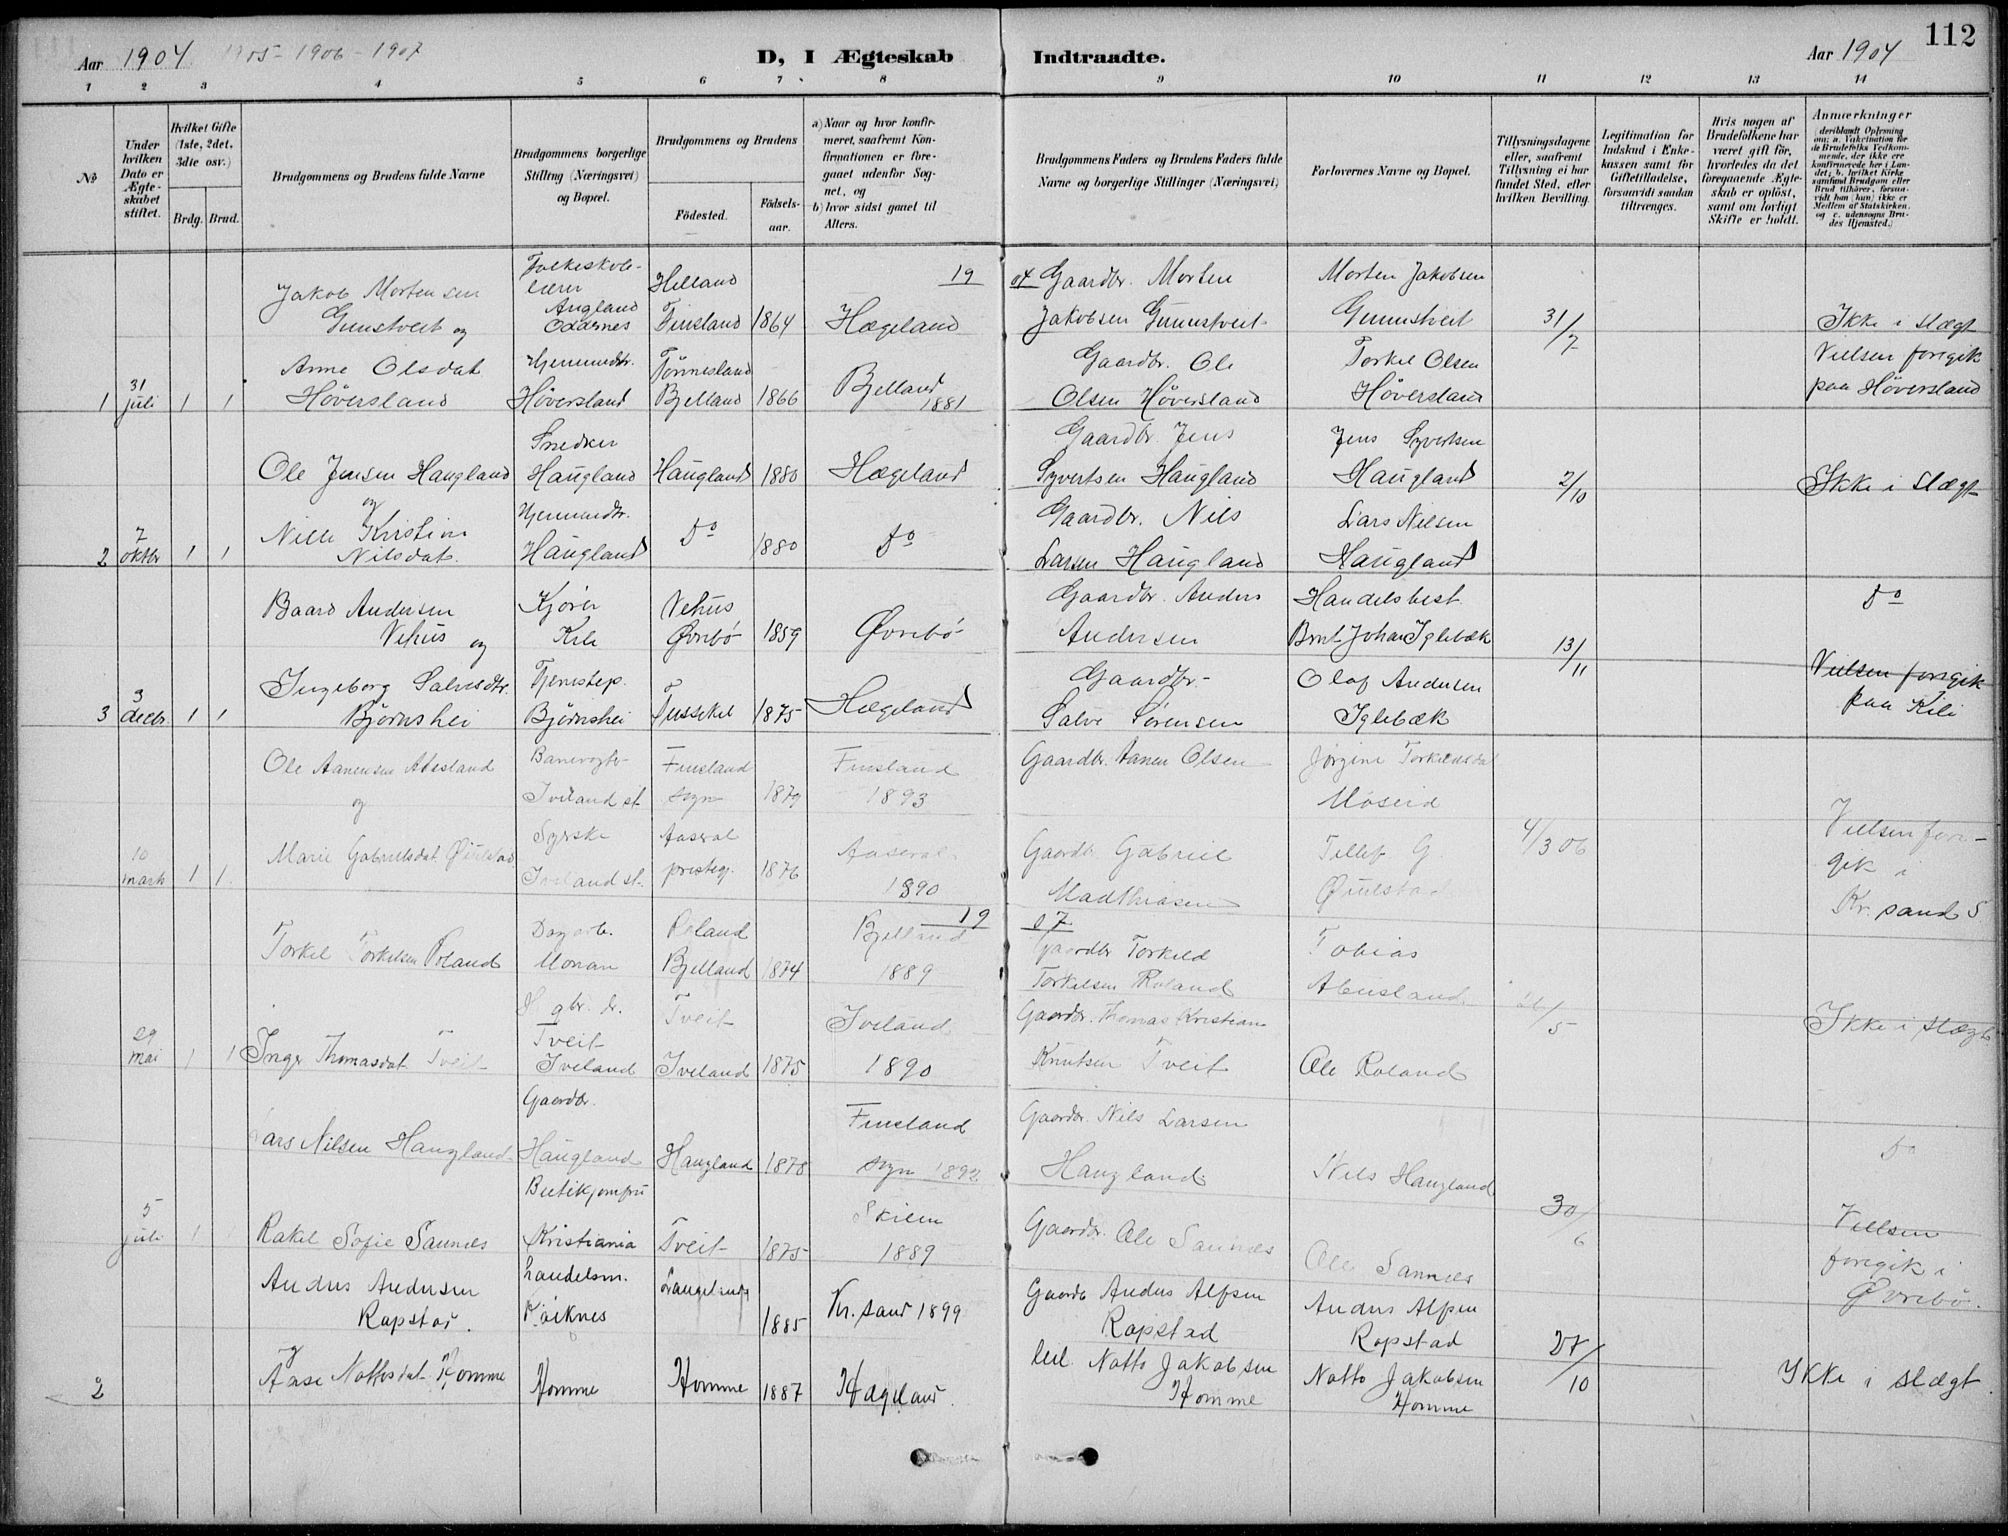 Aar 1904 1905 - 1906 - 1907
D, I Ægteskab Indtraadte.
Aar 1904
112
1 2 3 4 5 6 7 8 9 10 11 12 13 14
No
Under hvilken Dato er Ægteskabet stiftet.
Hvilket Gifte (1ste, 2det, 3die osv.)
Brdg. Brud.
Brudgommens og Brudens fulde Navne
Brudgommens borgerlige Stilling (Næringsvei) og Bopæl.
Brudgommens og Brudens
Fødested.
Fødselsaar.
a) Naar og hvor konfirmeret, saafremt Konfirmationen er foregaaet udenfor Sognet, og
b) hvor sidst gaaet til Alters.
Brudgommens Faders og Brudens Faders fulde Navne og borgerlige Stillinger (Næringsvei)
Forlovernes Navne og Bopæl.
Tillysningsdagene eller, saafremt Tillysning ei har fundet Sted, efter hvilken Bevilling.
Legitimation for Indskud i Enkekassen samt for Giftetilladelse, forsaavidt saadan tiltrænges.
Hvis nogen af Brudefolkene har været gift før, hvorledes da det foregaaende Ægteskab er opløst, samt om lovligt Skifte er holdt.
Anmærkninger
(deriblandt Oplysning om: a. Vakcination for de Brudefolks Vedkommende, der ikke ere konfirmerede her i Landet; b. hvilket Kirkesamfund Brudgom eller Brud tilhører, forsaavidt han (hun) ikke er Medlem af Statskirken. og c. udensogns Brudes Hjemsted.)
19 04
Jakob Mortensen Folkeskolelærer Helland Gaardbr. Morten Morten Jakobsen
Gumstveit og Augland Oddernes Finsland 1864 Hægeland Jakobsen Gumstveit Gumstveit 31/7 Ikke i slægt
Anne Olsdat Hjemmedtr. Tønnesland Gaardbr. Ole Torkel Olsen Vielsen foregik
1 31 juli 1 1 Høversland Høversland Bjelland 1866 Bjelland 1881 Olsen Høversland Høversland paa Høversland
Snedker Gaardbr. Jens Jens Syvertsen
Ole Jensen Haugland Haugland Haugland 1880 Hægeland Syvertsen Haugland Haugland 2/10 Ikke i slægt
og
Nille Kristine Hjemmedtr. Do Do Gaardbr. Nils Lars Nilsen
2 7 oktbr 1 1 Nilsdat. Haugland 1880 Larsen Haugland Haugland
Baard Andersen Kjører Vehus Gaardbr. Anders Handelsbest. Do
Vehus og Kile Øvrebø 1859 Øvrebø Andersen Bernt Johan Iglebæk 13/11
Ingeborg Salvesdtr. Tjenestep. Gaardbr. Olaf Andersen Vielsen foregik
3 3 decbr 1 1 Bjørnshei Bjørnshei Fusekil 1875 Hægeland Salve Sørensen Iglebæk paa Kile
Ole Aanensen Banevogter Finsland Finsland Gaardbr. Aanen Olsen Jørgine Torkildsdat
og Iveland st. sogn 1879 1893 Møseid
Syerske Aaseral Vielsen fore-
10 marts 1 1 Marie Gabrielsdat Iveland st. prestegj. 1876 Aaseral 1890 Gaardbr. Gabriel Madthiasen Tellef G. 4/3 06 gik i Kr. sand S.
19 07
Dagarb. Roland Bjelland
Torkel Torkelsen Roland Monan Bjelland 1874 1889 Gaardbr Torkeld Torkelsen Roland Tobias Abusland 26/5
gbr. dr. Tveit
29 mai 1 1 Inger Thomasdat. Tveit Tveit Iveland Iveland 1875 Iveland 1890 Gaardbr. Thomas Kristian Knutsen Tveit Ole Roland Ikke i slægt
Gaardbr.
Lars Nilsen Haugland Haugland Haugland 1878 Finsland sogn 1892 Gaardbr. Nils Larsen Haugland Nils Haugland Do
Butikjomfru
5 juli 1 Rakel Sofie Sannes Kristiania Tveit 1875 Skien 1889 Gaardbr. Ole Sannes Ole Sannes 30/6 Vielsen foregik i Øvrebø.
Anders Andersen Handelsm. Gaardb Anders Alfsen Anders Alfsen
Rapstad. Røiknes 1885 Kr. sand 1899 Rapstad Rapstad 27/10
og
2 Aase Nottosdat Homme Homme Homme 1887 Hægeland. Notto Jakobsen Homme Notto Jakobsen Homme Ikke i slægt.